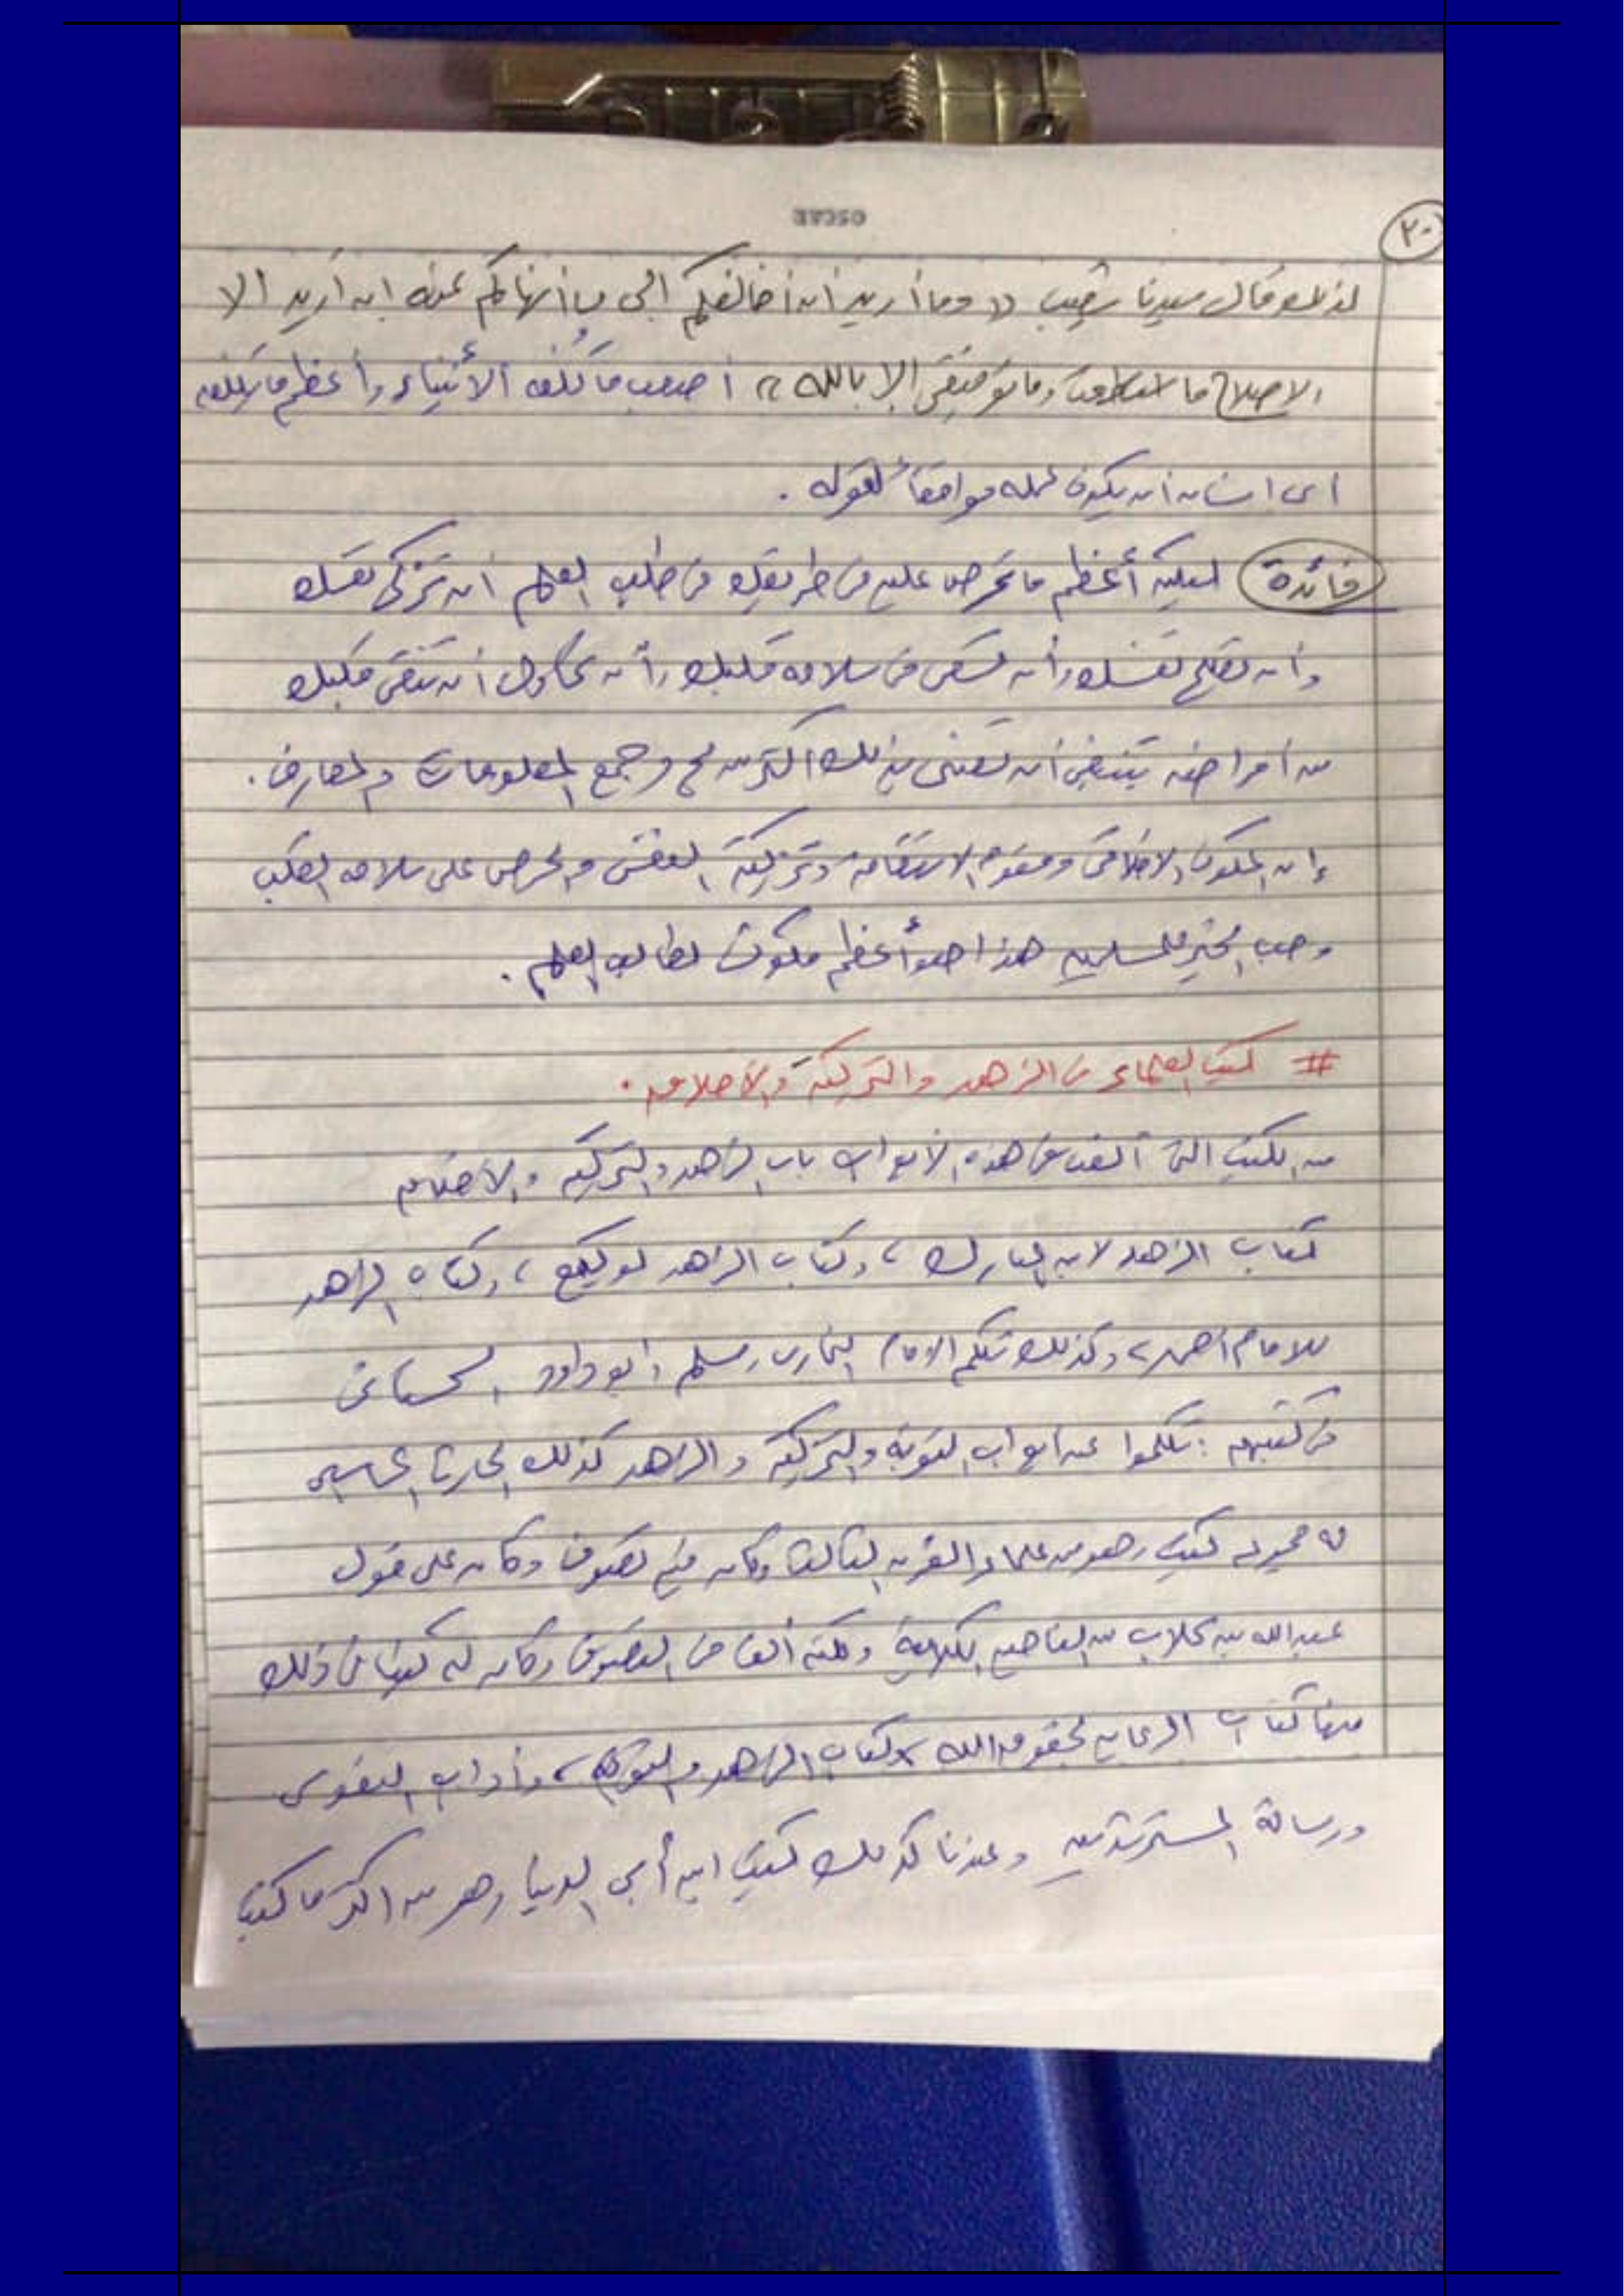 OSCAR
٢٠
لذلك قال سيدنا شعيب (( وما أريد أن أخالفكم إلى ما أنهاكم عنه إن أريد إلا
الإصلاح ما استطعت وما توفيقي إلا بالله )) أصعب ما كُلف الأنبياء وأعظم ما يكلف
أي إنسان أن يكون عمله موافقاً لقوله .
فائدة ليكن أعظم ما تحرص عليه في طريقك في طلب العلم أن تزكى نفسك
وأن تصلح نفسك وأن تسعى في سلامة قلبك وأن تحاول أن تنقى قلبك
من أمراضه ينبغي أن تعتنى بذلك أكثر من مجرد جمع المعلومات والمعارف .
إن المكون الأخلاقي ومقوم الاستقامة وتزكية النفس والحرص على سلامة القلب
وحب الخير للمسلمين هذا هو أعظم مكون لطالب العلم .
# كتب العلماء في الزهد والتزكية والأخلاق .
من الكتب التي ألفت في هذه الأبواب باب الزهد والتزكية والأخلاق
كتاب الزهد لابن المبارك ، وكتاب الزهد لوكيع ، وكتاب الزهد
للإمام أحمد ، وكذلك تكلم الإمام البخاري ومسلم وأبو داود السجستاني
في كتبهم : تكلموا عن أبواب التوبة والتزكية والزهد كذلك الحارث المحاسبي
له مجموعة كتب وهو من علماء القرن الثالث وكان فيه تصوف وكان على قول
عبد الله بن كلاب من الكلامية ولكنه ألف في التصوف وكان له كتباً في ذلك
منها كتاب الرعاية لحقوق الله ، وكتاب الزهد والتوهم ، وآداب النفوس
ورسالة المسترشدين وعندنا كذلك كتب ابن أبي الدنيا وهو من أكثر ما كتب